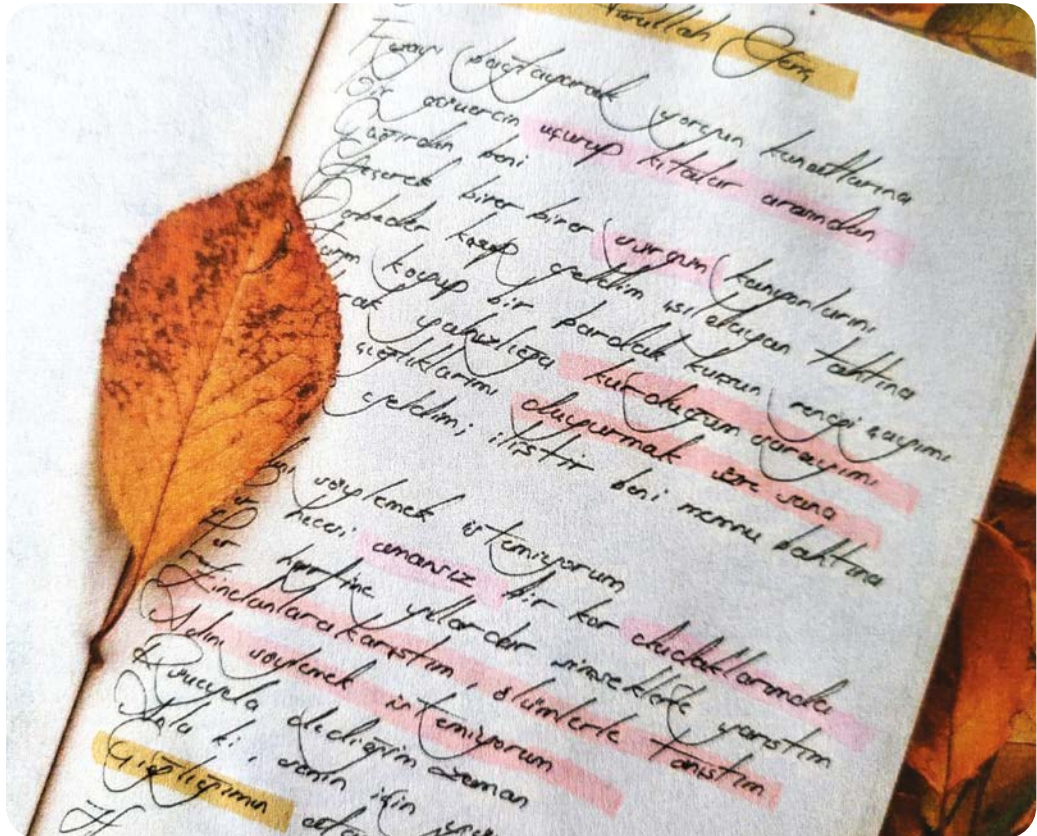 Nurullah Genç
Kuşları bağışlayarak yorgun kanatlarına
Bir güvercin uçurup kitaplar arasından
Çağırdın beni
Geçerek birer birer vurgun kanyonlarını
Derbeder koşup geldim ışıldayan tahtına
koyup bir bardak kuşun rengi çayımı
yalnızlığa kurduğum sarayımı
açtıklarımı duyurmak üzre sana
geldim; iliştir beni memnu bahtına
söylemek istemiyorum
Her hecesi amansız bir kor dudaklarımda
Her yıllardır şimşeklerle yarıştım
Zindanlara karıştım, ölümlerle tanıştım
Adını söylemek istemiyorum
Rüveyda dediğim zaman
Anla ki, senin için
Çığlığımın